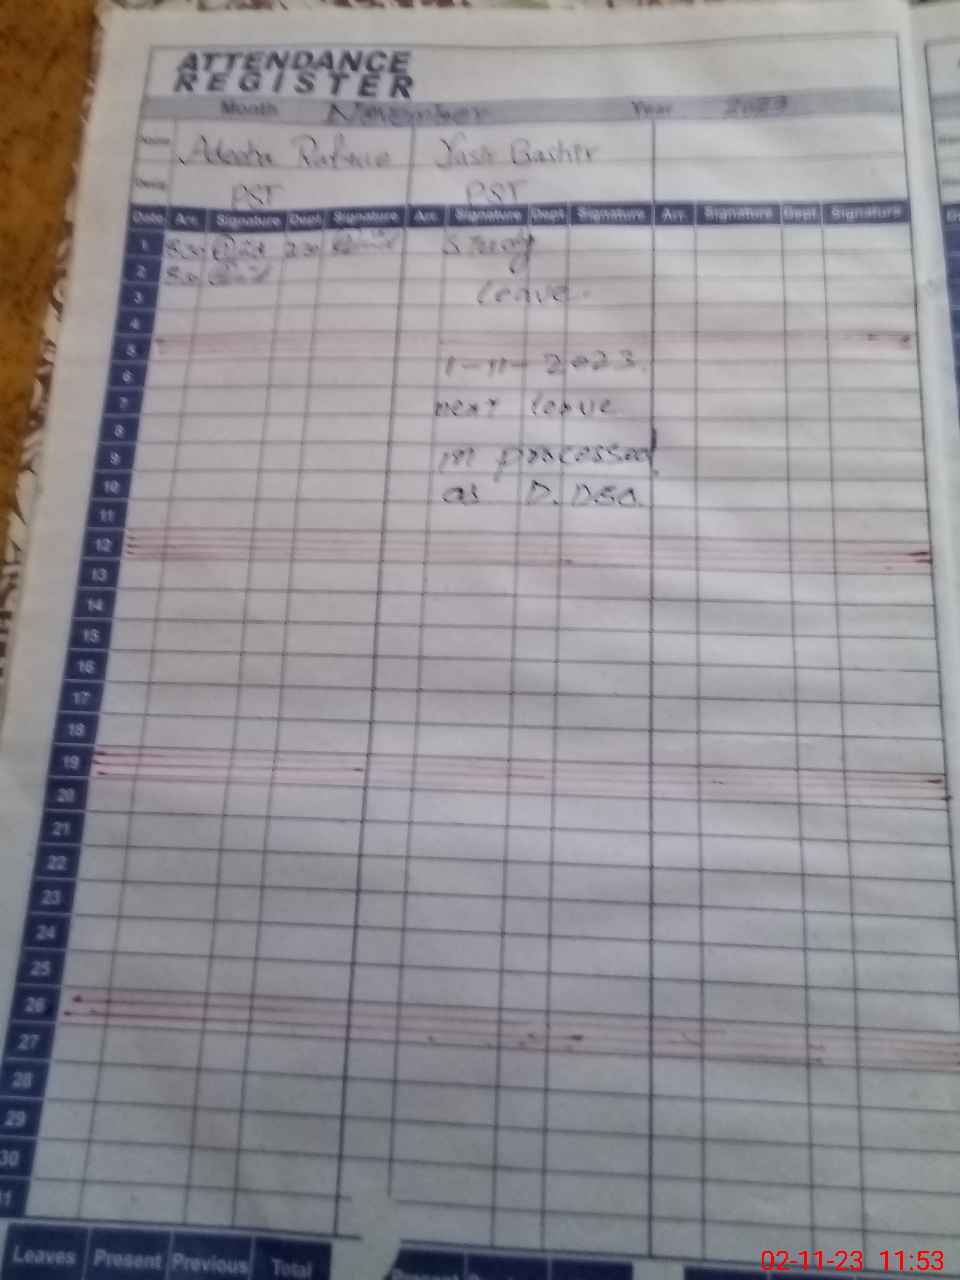 ATTENDANCE
REGISTER
Month November Year 2023
Name Yasir Bashir
Desig PST PST
Date Arr. Signature Dept. Signature Arr. Signature Dept. Signature Arr. Signature Dept. Signature
1 8:30 2:30 Study
2 8:30
3 leave.
4
5
6 1-11-2023.
7 next leave
8
9 in processed
10 as D.DEO.
11
12
13
14
15
16
17
18
19
20
21
22
23
24
25
26
27
28
29
30
Leaves Present Previous Total
Present
02-11-23 11:53